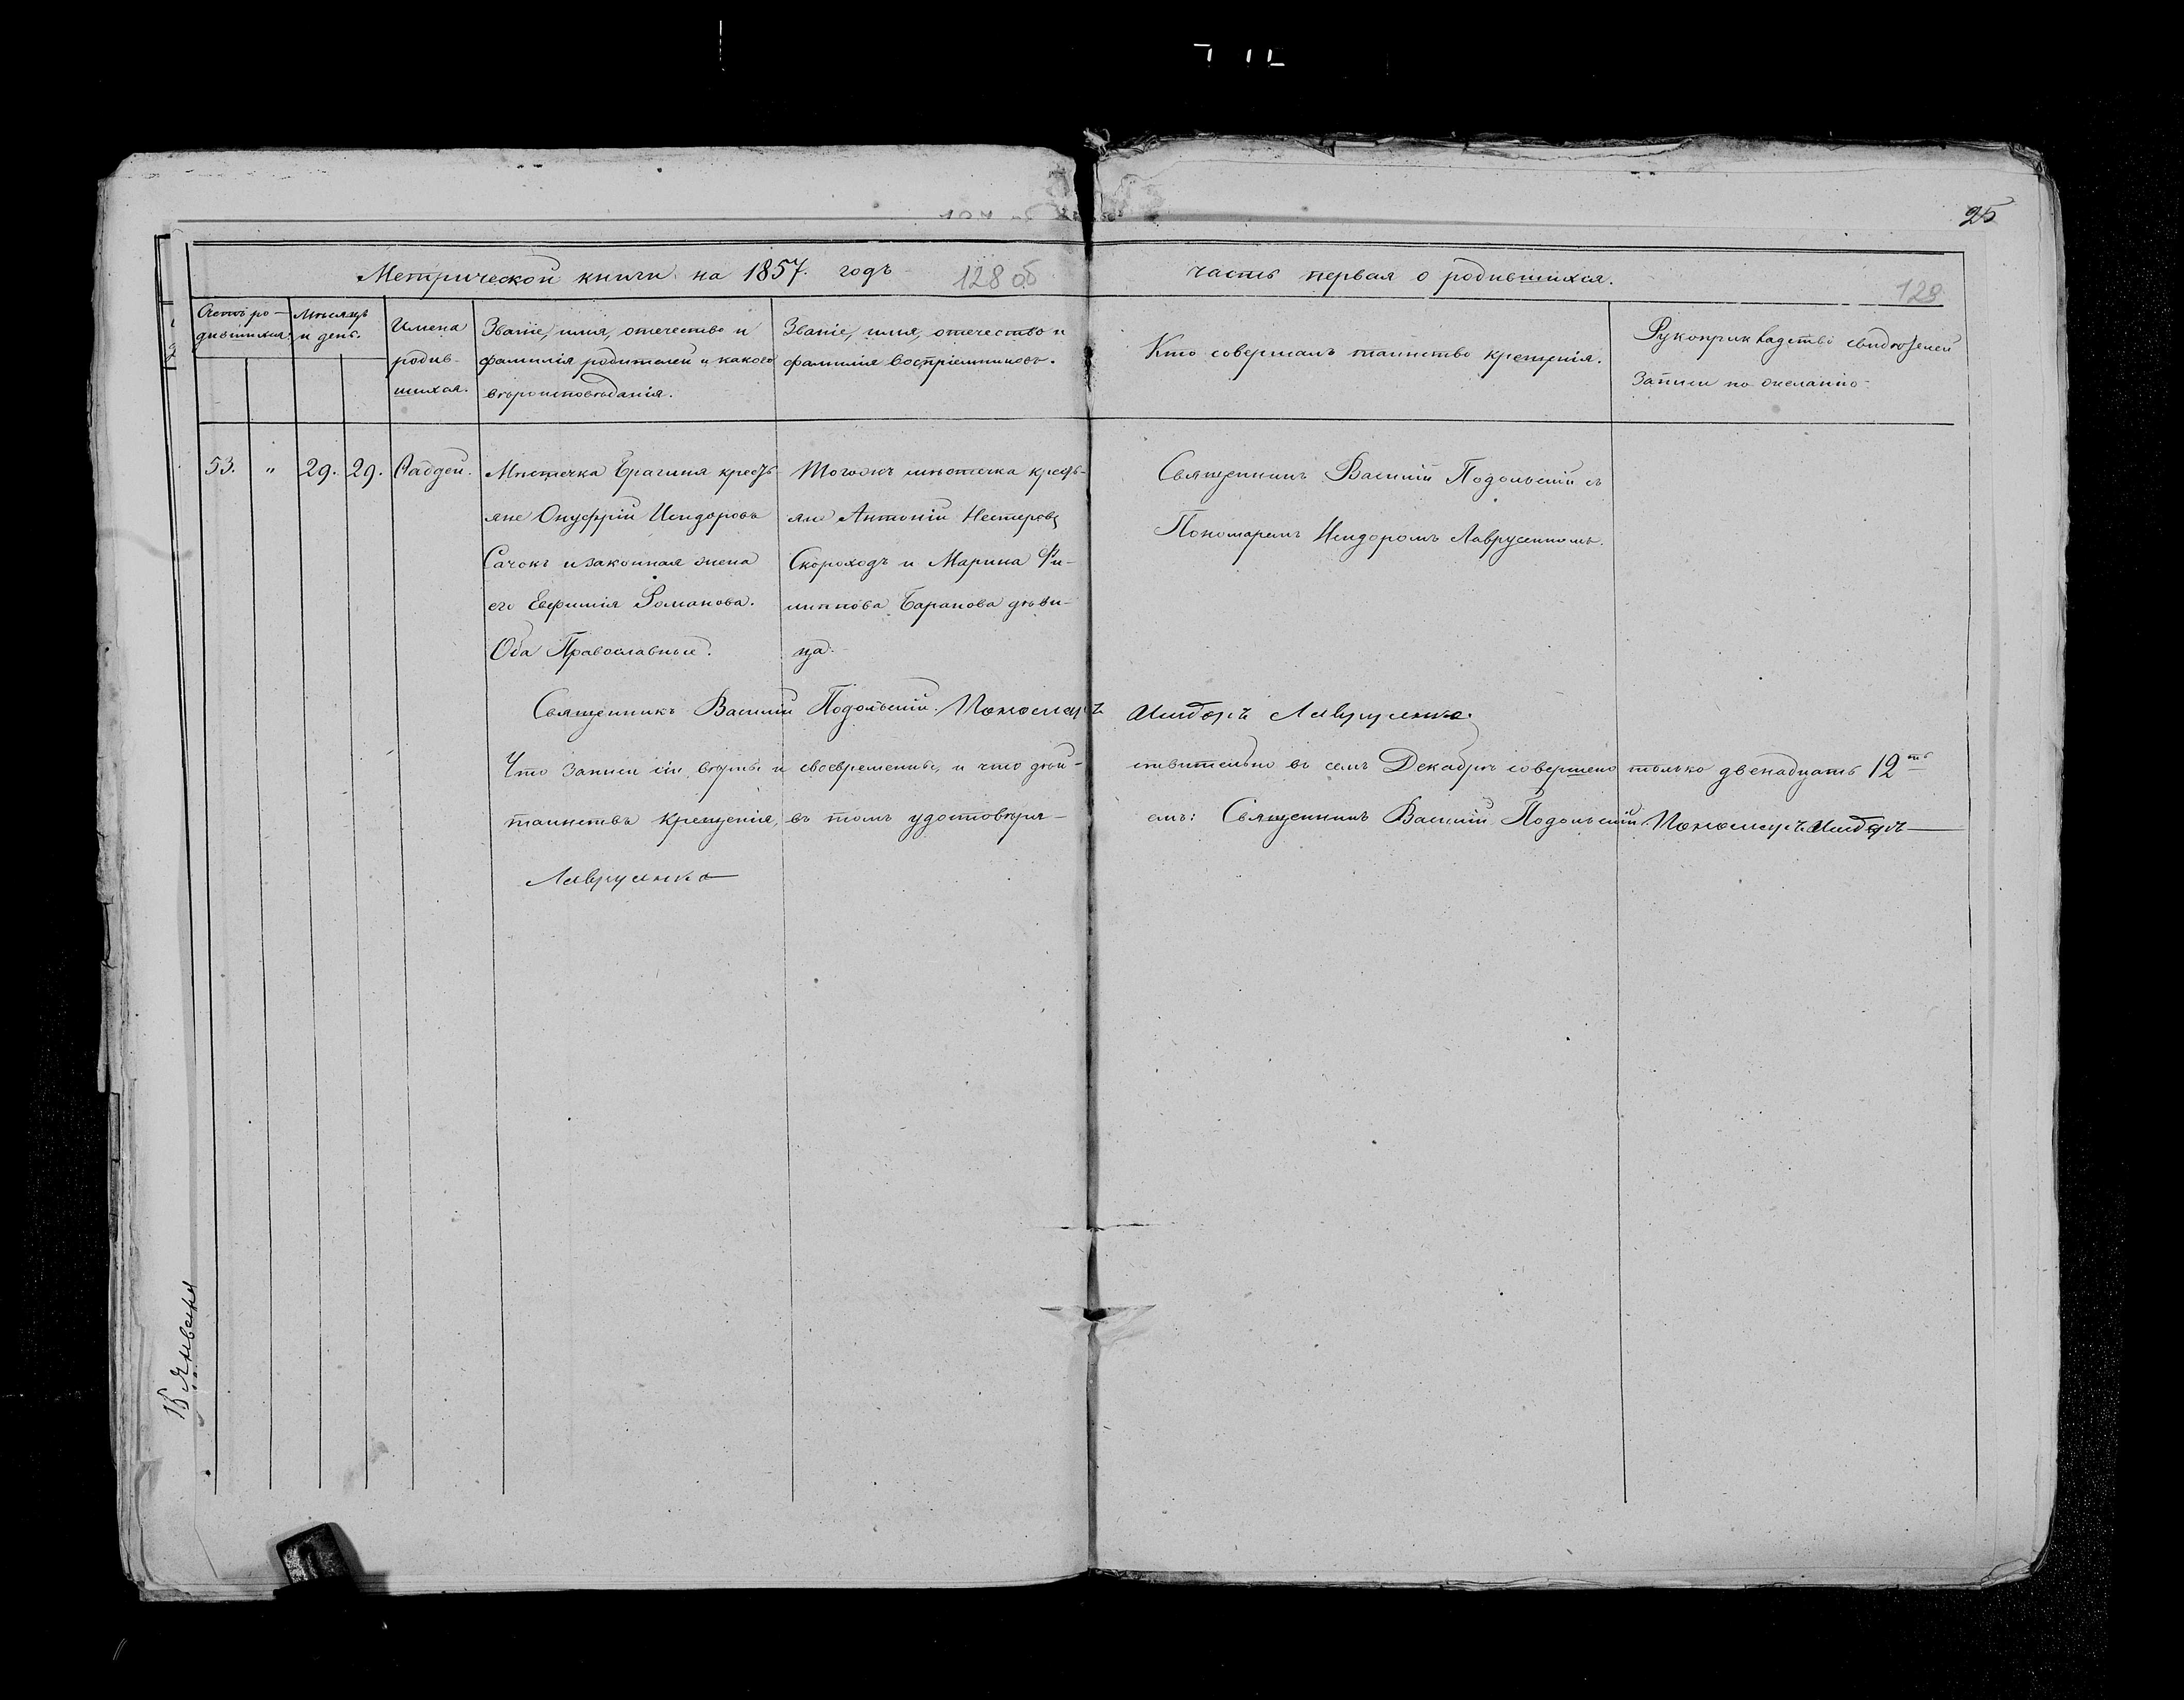 25
Метрической книги на 1857. годъ 128 об часть первая о родившихся. 129
Счетъ ро-
дившихся.
Мѣсяцъ
и день.
Имена
родив-
шихся.
Званіе, имя, отечество и
фамилія родителей и какого
вѣроисповѣданія.
Званіе, имя, отечество и
фамилія воспріемниковъ.
Кто совершалъ таинство крещенія.
Рукоприкладство свидѣтелей
записи по желанію
53. " 29. 29. Фаддей.
Мѣстечка Брагиня кресть-
яне Онуфрій Исидоровъ
Сачокъ и законная жена
его Евфимія Романова.
Оба Православные.
Тогожъ мѣстечка кресть-
яне Антоній Нестеровъ
Скороходъ и Марина Фи-
липпова Баранова дѣви-
ца.
Священникъ Василій Подольскій съ
Пономаремъ Исидоромъ Лаврусенкомъ.
Священникъ Василій Подольскій. Пономарь Исидоръ
Что записи сіи вѣрны и своевременны, и что дѣй- ствительно въ семъ Декабрѣ совершено только двенадцать 12ть
таинствъ крещенія, въ томъ удостовѣря- емъ: Священникъ Василій Подольскій. Пономарь Исидоръ